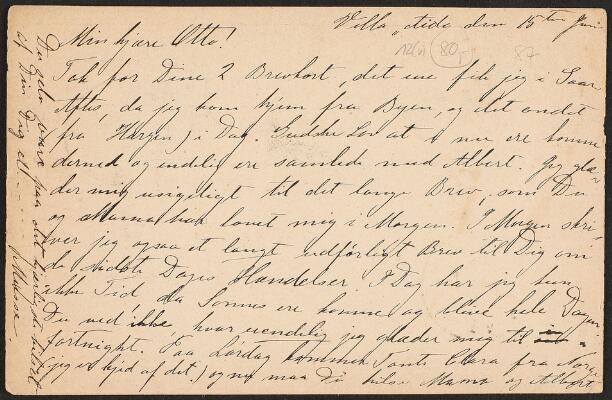 Villa tida den 15ten Juni
Min kjære Otto!
12(4) 80,- 87
Tak for Dine 2 Brevkort, det ene fik jeg i Saar
Aftes, da jeg kom hjem fra Byen, og det andet
fra Hergen) i Dag. Gudske Lov at I nu ere komne
derned og endelig ere samlede med Albert. Jeg glæ
der mig usigeligt til det lange Brev, som Du
og Mama har lovet mig i Morgen. I Morgen skri
ver jeg ogsaa et langt udførligt Brev til Dig om
de sidste Dages Hændelser. I Dag har jeg kun
ikke Tid da Sonnes ere komne og blive hele Dagen
Du ved ikke, hvor uendelig jeg glæder mig til
fortnight. Paa Lørdag kommer Tante Clara fra Norge
(jeg er kjed af det.) og nu maa Du hilse Mama og Albert
Du selv være paa det kjærligste hilset
af Din Jeg ell - - -